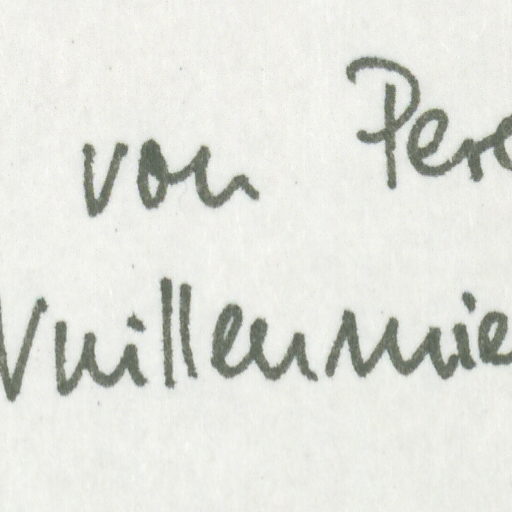 von Pere
Vuillenmie